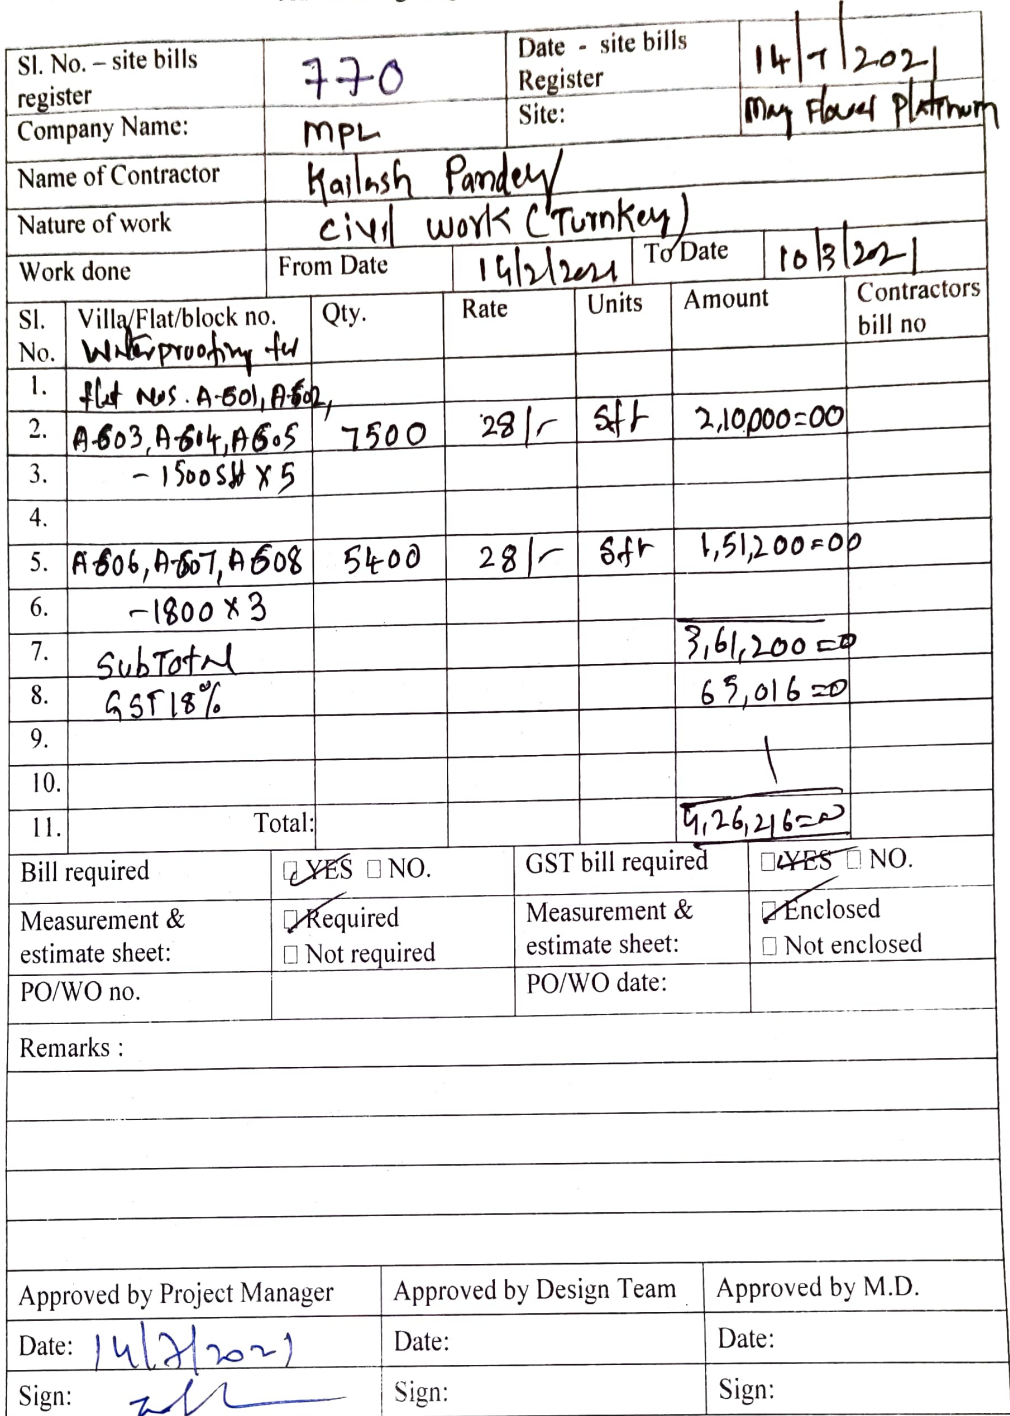 Sl. No. – site bills register 770 Date - site bills Register 14/7/2021
Company Name: MPL Site: May Flower Platinum
Name of Contractor Kailash Pandey
Nature of work civil work (Turnkey)
Work done From Date 14/2/2021 To Date 10/3/2021
Sl. No. Villa/Flat/block no. Qty. Rate Units Amount Contractors bill no
Waterproofing for
1. flat Nos. A-601, A-602,
2. A-603, A-604, A-605 7500 28/- Sft 2,10,000=00
3. - 1500 Sft x 5
4.
5. A-606, A-607, A-608 5400 28/- Sft 1,51,200=00
6. - 1800 x 3
7. SubTotal 3,61,200=00
8. GST 18% 65,016=00
9.
10.
11. Total: 4,26,216=00
Bill required YES NO. GST bill required YES NO.
Measurement & estimate sheet: Required Not required Measurement & estimate sheet: Enclosed Not enclosed
PO/WO no. PO/WO date:
Remarks :
Approved by Project Manager Approved by Design Team Approved by M.D.
Date: 14/7/2021 Date: Date:
Sign: Sign: Sign: